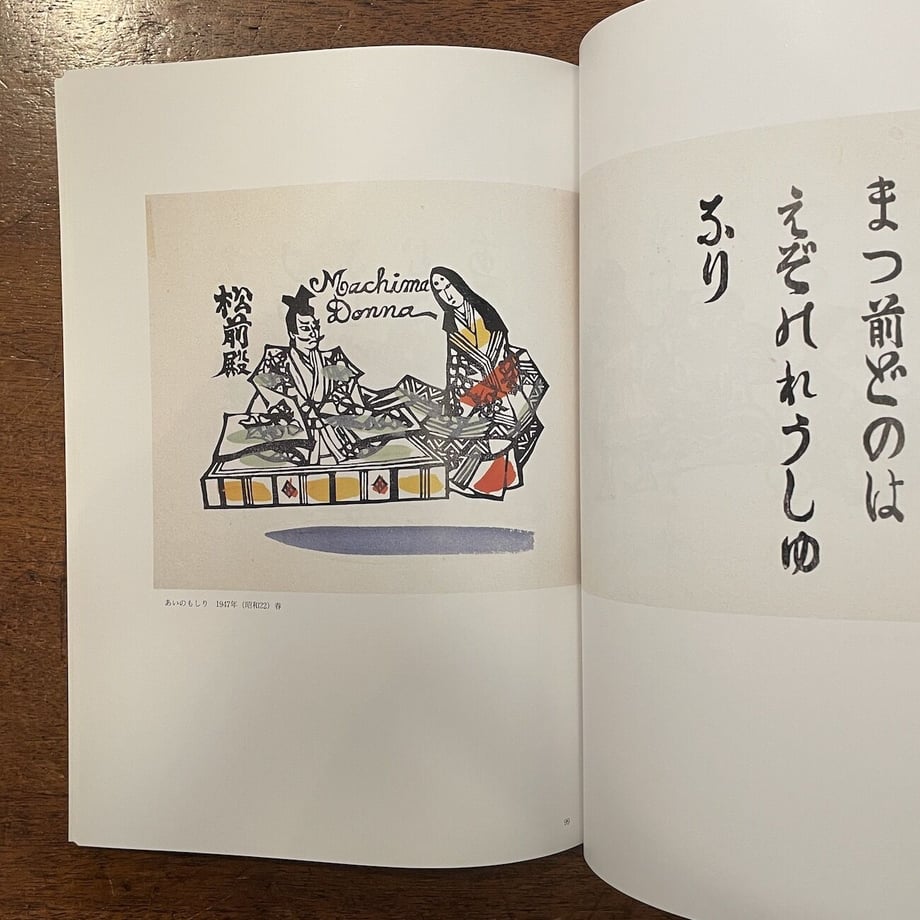 松前殿
Machima
Donna
あいのもしり 1947年(昭和22)春
まつ前どのは
えぞのれうしゆ
なり